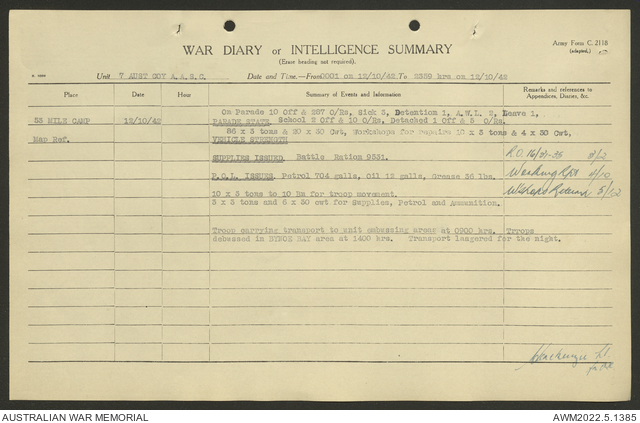 Army Form C. 2118
(adapted.)
WAR DIARY or INTELLIGENCE SUMMARY
(Erase heading not required).
Unit 7 AUST COY A.A.S.C. Date and Time.—From 0001 on 12/10/42 To 2359 hrs on 12/10/42
Place Date Hour Summary of Events and Information Remarks and references to Appendices, Diaries, &c.
On Parade 10 Off & 267 O/Rs, Sick 5, Detention 1, A.W.L. 2, Leave 1,
53 MILE CAMP 12/10/42 PARADE STATE. School 2 Off & 10 O/Rs, Detached 1 Off & 5 O/Rs.
86 x 3 tons & 20 x 30 Cwt, Workshops for repairs 10 x 3 tons & 4 x 30 Cwt,
Map Ref. VEHICLE STRENGTH
SUPPLIES ISSUED. Battle Ration 9531.
P.O.L. ISSUES. Petrol 704 galls, Oil 12 galls, Grease 56 lbs.
10 x 3 tons to 10 Bn for troop movement.
3 x 3 tons and 6 x 30 cwt for Supplies, Petrol and Ammunition.
R.O.
Working Rpt 4/10
Return 5/12
Troop carrying transport to unit embussing areas at 0900 hrs. Trrops
debussed in BYNOE BAY area at 1400 hrs. Transport laagered for the night.
AUSTRALIAN WAR MEMORIAL
AWM2022.5.1385